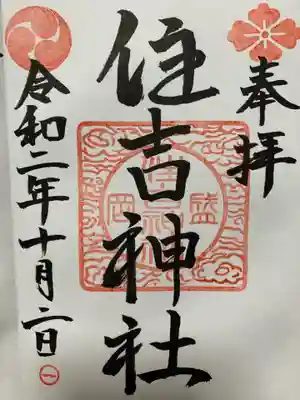 奉拝
住吉神社
盛岡
令和二年十月二日